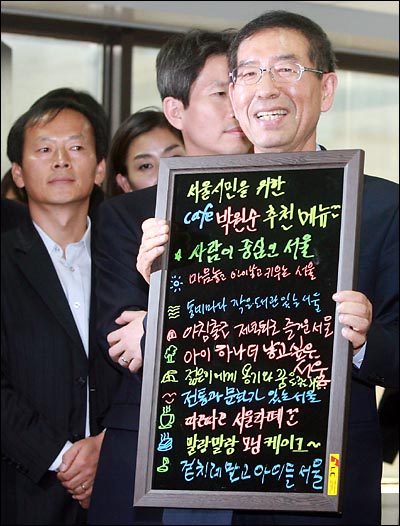 서울시민을 위한
cafe 박원순 추천 메뉴
사람이 중심인 서울
마음놓고 키우는 서울
동네마다 작은도서관 있는 서울
아침출근 저녁퇴근 즐거운 서울
아이 하나 더 낳고 싶은 서울
젊은이에게 용기와 꿈을 서울
전통과 문화가 있는 서울
따르따르 서울라떼
말랑말랑 모닝 케이크~
겉치레 말고 아이들 서울